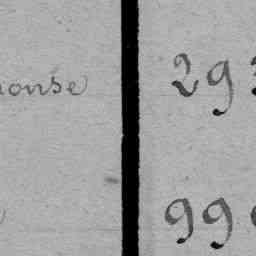 honse 293
99